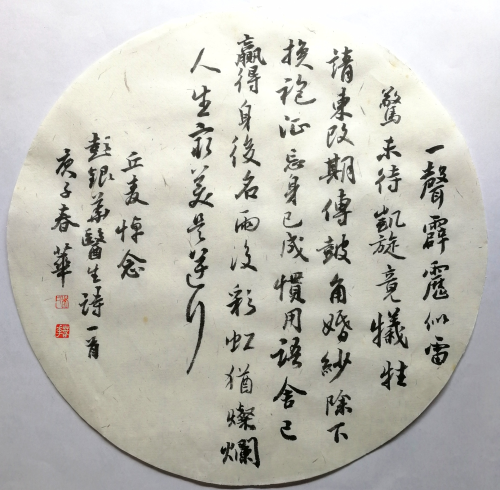 一聲霹靂似雷
驚未待凱旋竟犧牲
請柬改期傳鼓角婚紗除下
換袍征忘身已成慣用語舍己
贏得身後名雨後彩虹猶燦爛
人生最美是逆行
丘麦悼念
彭银华醫生詩一首
庚子春華